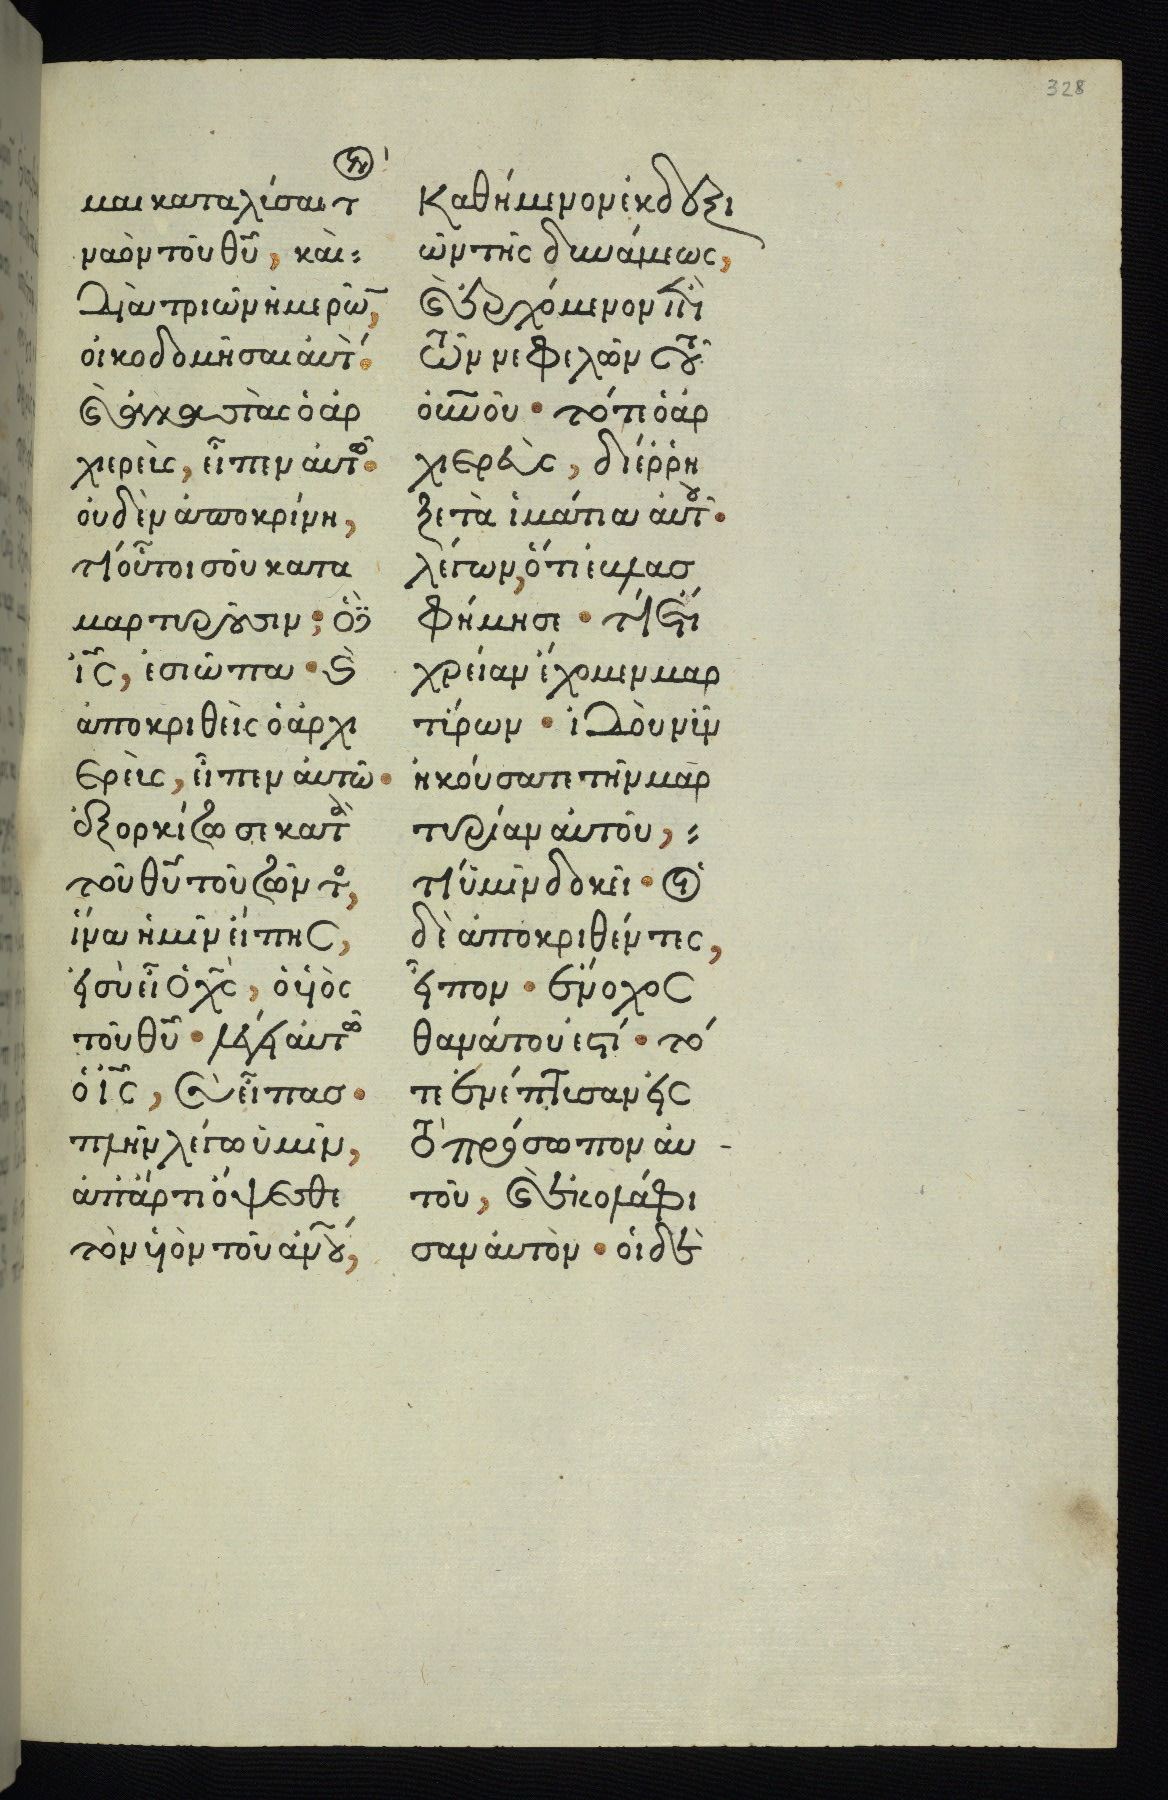 328
μαι καταλύσαι τ
ναὸν τοῦ θῦ, καὶ
διὰ τριῶν ἡμερῶ̃,
οἰκοδομῆσαι αὐτ·
ϗ ἀναστὰς ὁ ἀρ
χιερεὺς, εἶπεν αὐτῶ·
οὐδὲν ἀποκρίνη,
τί οὗτοι σοῦ κατα
μαρτυροῦσιν; ὁ δὲ
ἰς̃, ἐσιώπα· ϗ
ἀποκριθεὶς ὁ ἀρχι
ερεὺς, εἶπεν αὐτῶ·
ἐξορκίζω σε κατὰ
τοῦ θῦ τοῦ ζῶντο,
ἵνα ἡμῖν εἴπης,
εἰ σὺ εἶ ὁ χς̃, ὁ υἱὸς
τοῦ θῦ· λέγει αὐτῶ
ὁ ἰς̃, σὺ εἶπας·
πλὴν λέγω ὑμῖν,
ἀπάρτι ὄψεσθε
τὸν υἱὸν τοῦ ἀνου,
καθήμενον ἐκ δεξι
ῶν τῆς δυνάμεως,
ϗ ἐρχόμενον ἐπὶ
τῶν νεφελῶν τοῦ
οὐνοῦ· τότε ὁ ἀρ
χιερεὺς, διέρρη
ξε τὰ ἱμάτια αὐτοῦ·
λέγων, ὅτι ἐβλασ
φήμησε· τί ἔτι
χρείαν ἔχομεν μαρ
τύρων· ἰδοὺ νῦν
ἠκούσατε τὴν μαρ
τυρίαν αὐτοῦ,
τί ὑμῖν δοκεῖ· οἱ
δὲ ἀποκριθέντες,
εἶπον· ἔνοχος
θανάτου ἐστί· τό
τε ἐνέπτυσαν εἰς
τὸ πρόσωπον αὐ
τοῦ, ϗ ἐκολάφι
σαν αὐτὸν· οἱ δὲ